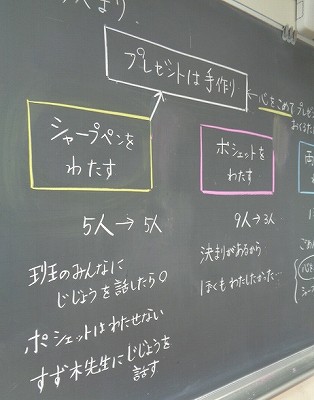 より.
プレゼントは手作り
←心をこめてプレゼ
おくるた
シャープペンを
わたす
ポシェットを
わたす
5人→5人
9人→3人
班のみんなに
じじょうを話したら○
ポシェットはわたせない
すず木先生にじじょうを
話す
決まりがあるから
ぼくもわたしたかった…